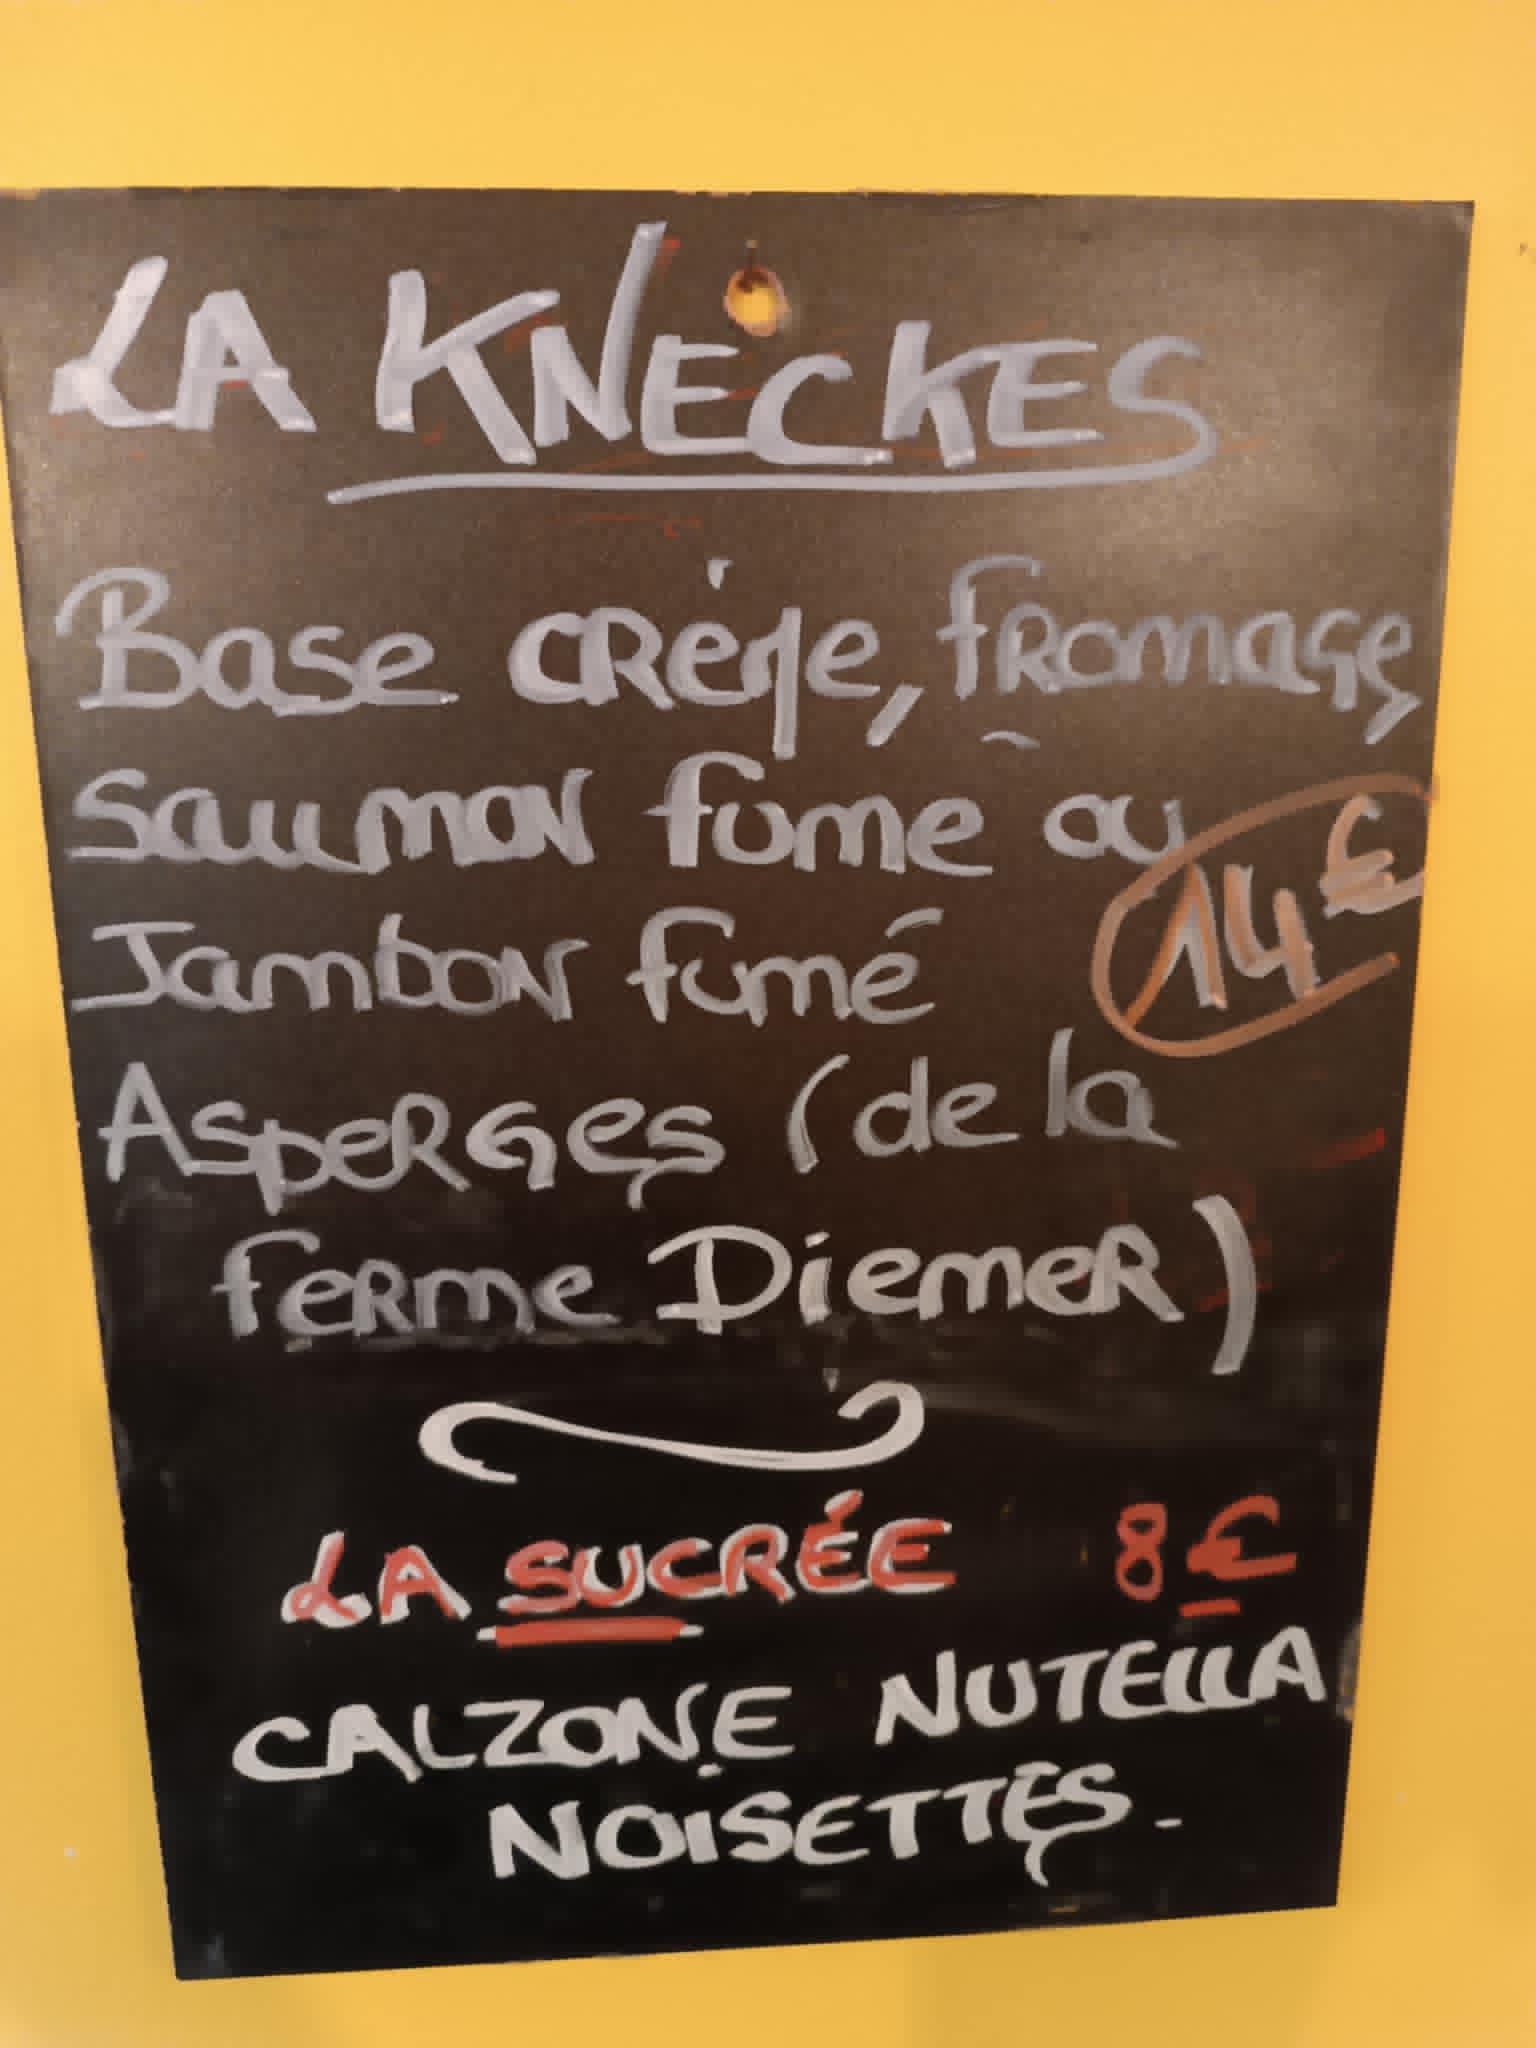 LA KNECKES
Base crème, fromage
Saumon fume ou
14€
Jambon fumé
Asperges (de la
ferme Diemer)
LA SUCRÉE 8€
CALZONE NUTELLA
NOISETTES.